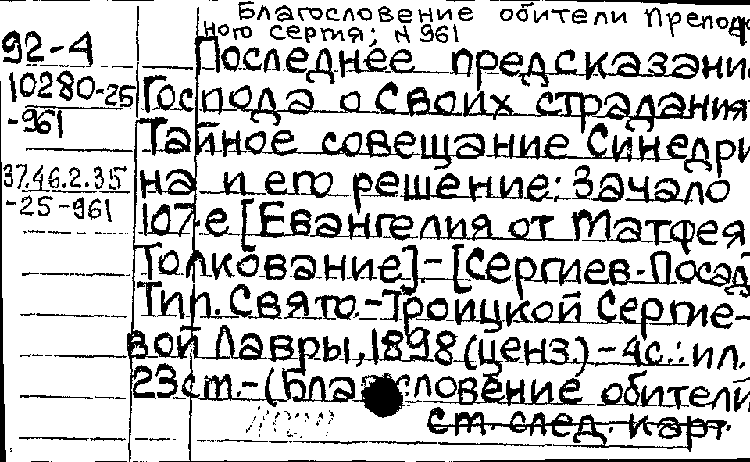 Благословение обители Преподоб
ного Сергия; N 961
92-4
Последнее предсказани
10280-25
-961
Господа о Своих страдания
Тайное совещание Синедри
37.46.2.35
-25-961
на и его решение: Зачало
107-е [Евангелия от Матфея
Толкование]-[Сергиев-Посад
Тип. Свято-Троицкой Сергие-
вой Лавры, 1898 (ценз.) - 4с.: ил.
23 см.-(Благословение обители
см. след. карт.